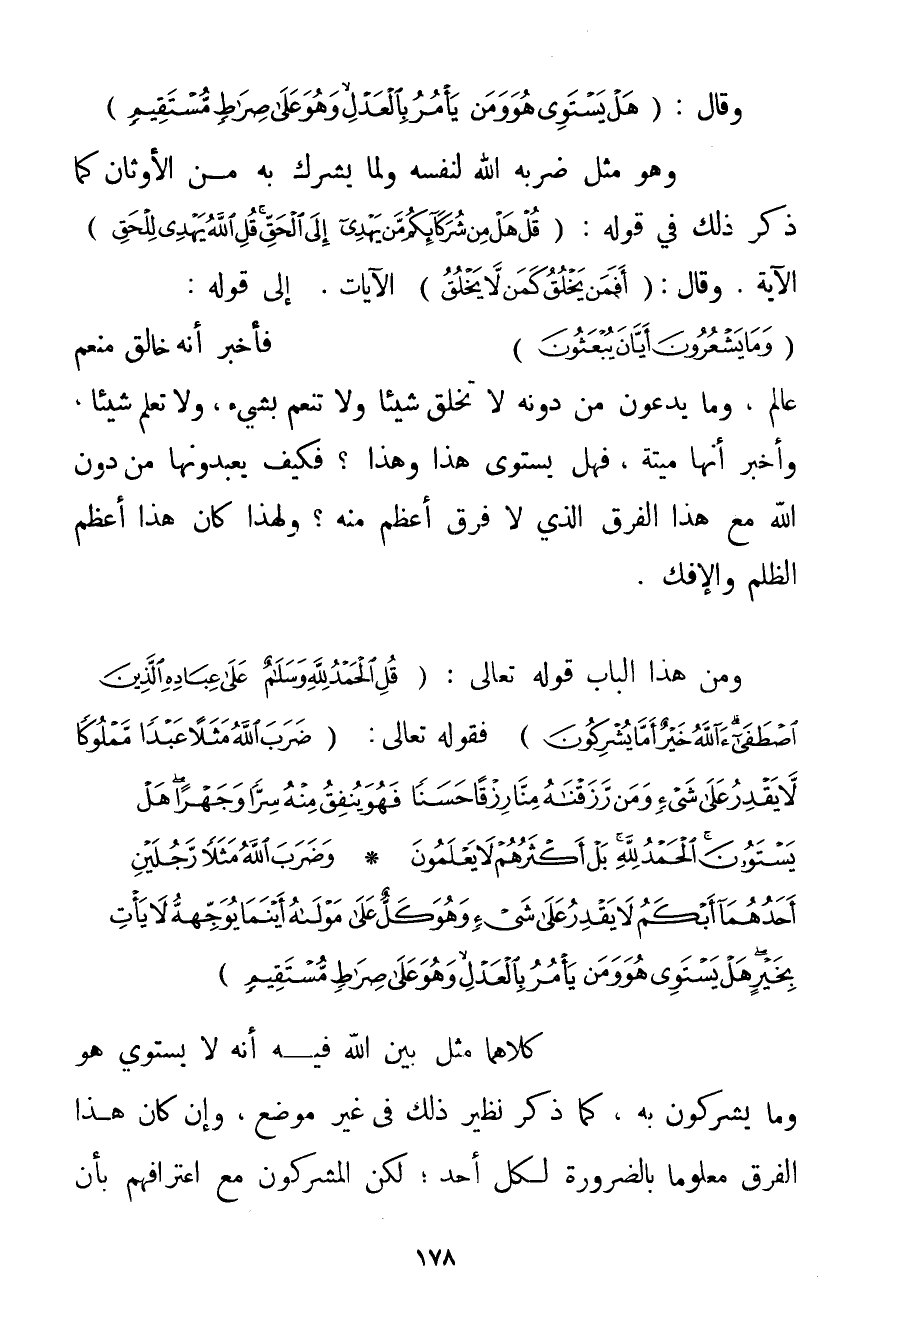 وقال : ( هَلْ يَسْتَوِى هُوَ وَمَن يَأْمُرُ بِٱلْعَدْلِ ۙ وَهُوَ عَلَىٰ صِرَٰطٍ مُّسْتَقِيمٍ )
وهو مثل ضربه الله لنفسه ولما يشرك به مـن الأوثان كما
ذكر ذلك في قوله : ( قُلْ هَلْ مِن شُرَكَآئِكُم مَّن يَهْدِىٓ إِلَى ٱلْحَقِّ ۚ قُلِ ٱللَّهُ يَهْدِى لِلْحَقِّ )
الآية . وقال : ( أَفَمَن يَخْلُقُ كَمَن لَّا يَخْلُقُ ) الآيات . إلى قوله :
( وَمَا يَشْعُرُونَ أَيَّانَ يُبْعَثُونَ ) فأخبر أنه خالق منعم
عالم ، وما يدعون من دونه لا تخلق شيئا ولا تنعم بشيء ، ولا تعلم شيئا .
وأخبر أنها ميتة ، فهل يستوى هذا وهذا ؟ فكيف يعبدونها من دون
الله مع هذا الفرق الذي لا فرق أعظم منه ؟ ولهذا كان هذا أعظم
الظلم والإفك .
ومن هذا الباب قوله تعالى : ( قُلِ ٱلْحَمْدُ لِلَّهِ وَسَلَٰمٌ عَلَىٰ عِبَادِهِ ٱلَّذِينَ
ٱصْطَفَىٰٓ ۗ ءَآللَّهُ خَيْرٌ أَمَّا يُشْرِكُونَ ) فقوله تعالى : ( ضَرَبَ ٱللَّهُ مَثَلًا عَبْدًا مَّمْلُوكًا
لَّا يَقْدِرُ عَلَىٰ شَىْءٍ وَمَن رَّزَقْنَٰهُ مِنَّا رِزْقًا حَسَنًا فَهُوَ يُنفِقُ مِنْهُ سِرًّا وَجَهْرًا ۖ هَلْ
يَسْتَوُۥنَ ۚ ٱلْحَمْدُ لِلَّهِ ۚ بَلْ أَكْثَرُهُمْ لَا يَعْلَمُونَ * وَضَرَبَ ٱللَّهُ مَثَلًا رَّجُلَيْنِ
أَحَدُهُمَآ أَبْكَمُ لَا يَقْدِرُ عَلَىٰ شَىْءٍ وَهُوَ كَلٌّ عَلَىٰ مَوْلَىٰهُ أَيْنَمَا يُوَجِّههُّ لَا يَأْتِ
بِخَيْرٍ ۖ هَلْ يَسْتَوِى هُوَ وَمَن يَأْمُرُ بِٱلْعَدْلِ ۙ وَهُوَ عَلَىٰ صِرَٰطٍ مُّسْتَقِيمٍ )
كلاهما مثل بين الله فيـه أنه لا يستوي هو
وما يشركون به ، كما ذكر نظير ذلك فى غير موضع ، وإن كان هـذا
الفرق معلوما بالضرورة لـكل أحد ؛ لكن المشركون مع اعترافهم بأن
١٧٨